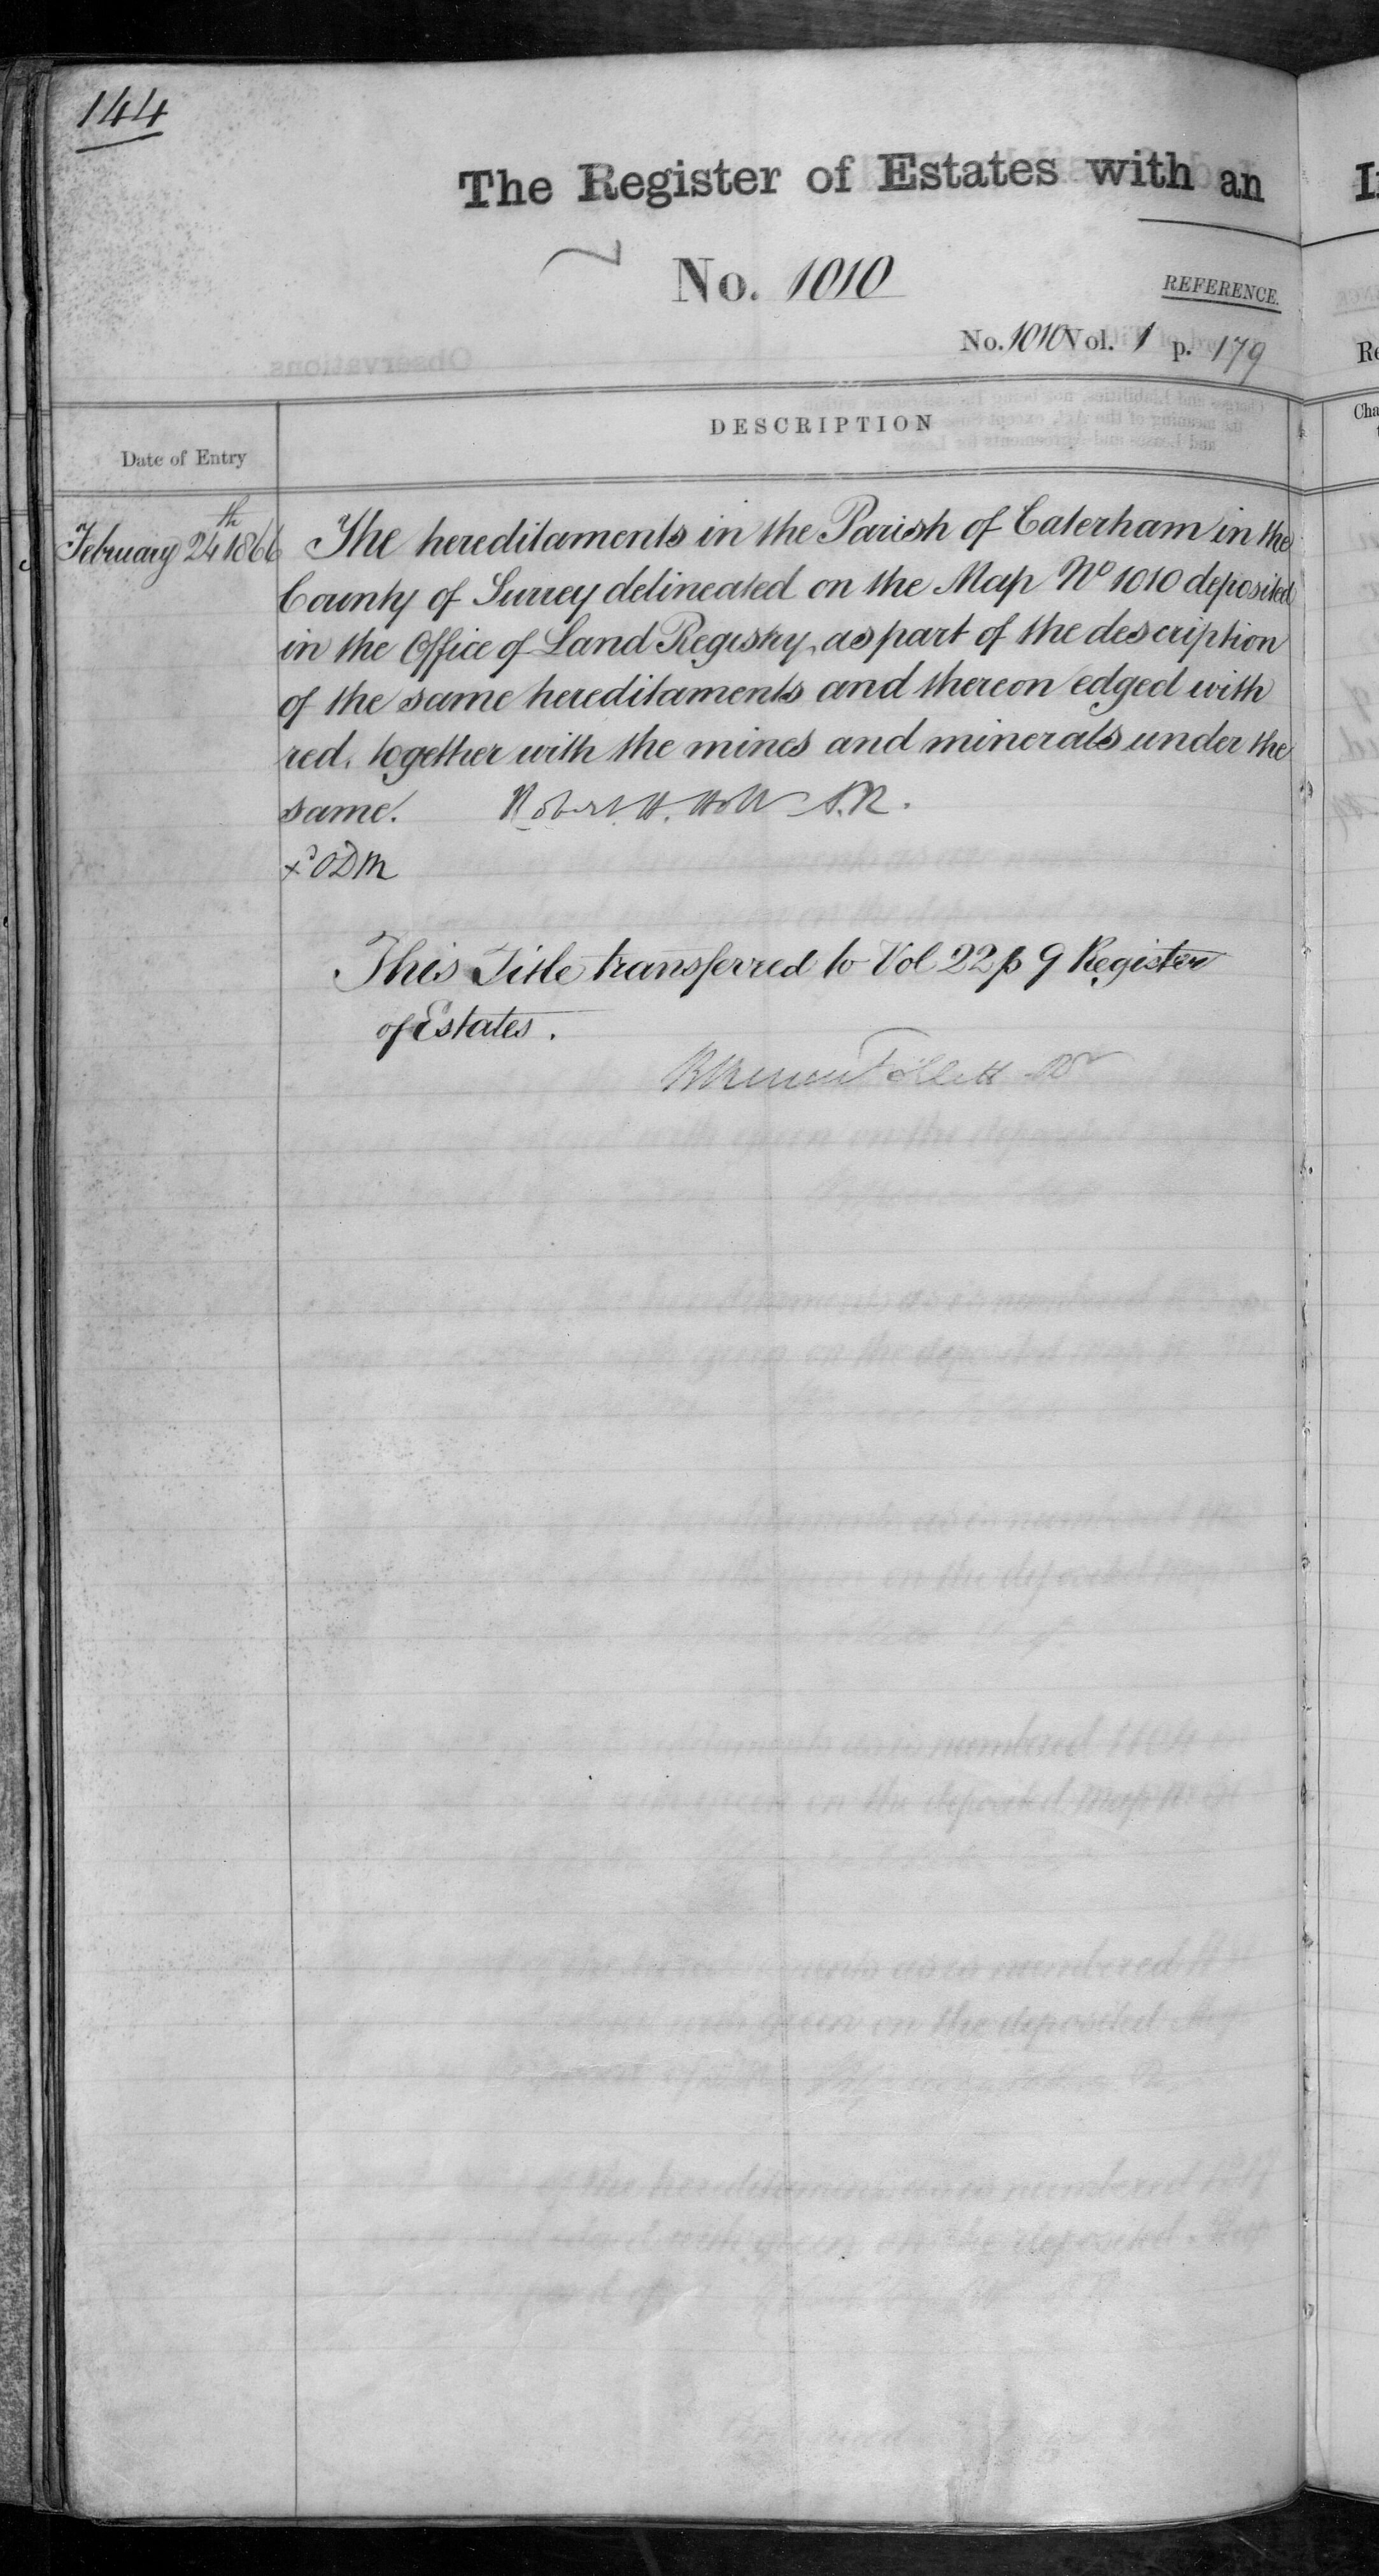 144
The Register of Estates with an
No. 1010
REFERENCE.
No. 1010 Vol. 1 p. 179
DESCRIPTION
Date of Entry
February 24th 1866
The hereditaments in the Parish of Caterham in the
County of Surrey delineated on the Map No 1010 deposited
in the Office of Land Registry, as part of the description
of the same hereditaments and thereon edged with
red, together with the mines and minerals under the
same. Robert H. Holt A.R.
ODM
This Title transferred to Vol 22 p 9 Register
of Estates.
Follett